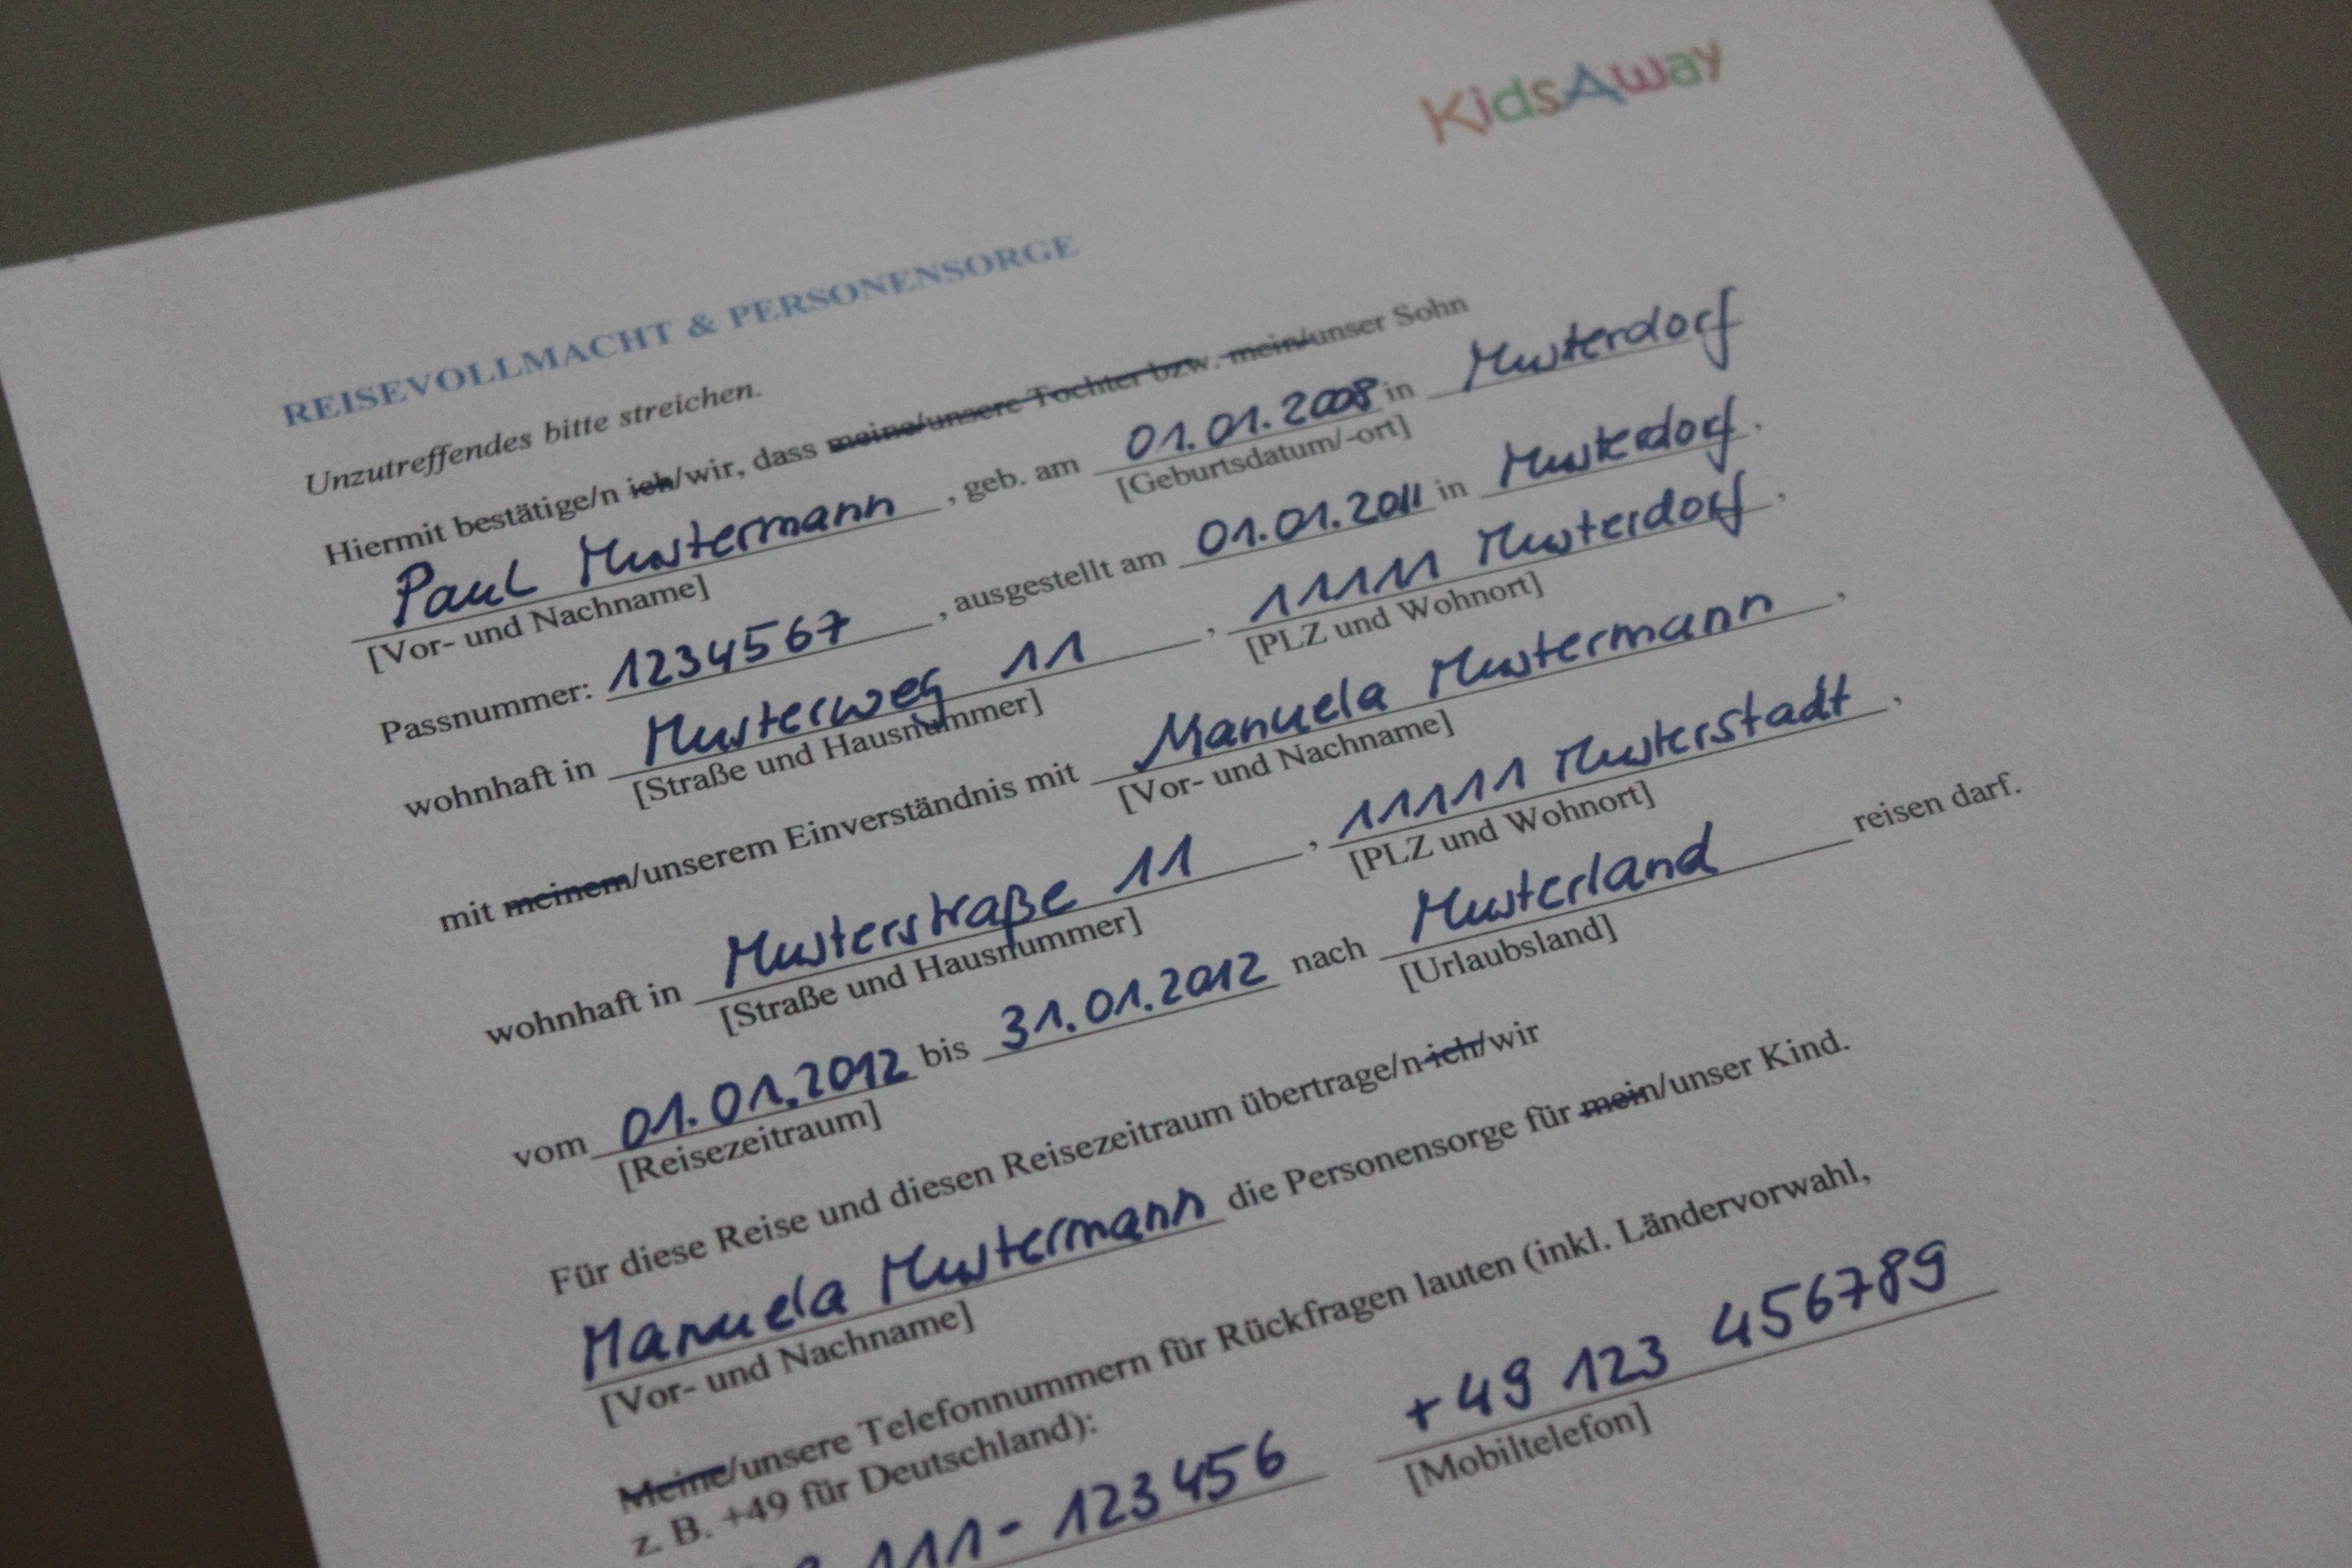 KidsAway
REISEVOLLMACHT & PERSONENSORGE
Unzutreffendes bitte streichen.
Hiermit bestätige/n ich/wir, dass meine/unsere Tochter bzw. mein/unser Sohn
Paul Mustermann, geb. am 01.01.2008 in Musterdorf
[Vor- und Nachname] [Geburtsdatum/-ort]
Passnummer: 1234567, ausgestellt am 01.01.2011 in Musterdorf.
wohnhaft in Musterweg 11, 11111 Musterdorf,
[Straße und Hausnummer] [PLZ und Wohnort]
mit meinem/unserem Einverständnis mit Manuela Mustermann,
[Vor- und Nachname]
wohnhaft in Musterstraße 11, 11111 Musterstadt,
[Straße und Hausnummer] [PLZ und Wohnort]
vom 01.01.2012 bis 31.01.2012 nach Musterland reisen darf.
[Reisezeitraum] [Urlaubsland]
Für diese Reise und diesen Reisezeitraum übertrage/n ich/wir
Manuela Mustermann die Personensorge für mein/unser Kind.
[Vor- und Nachname]
Meine/unsere Telefonnummern für Rückfragen lauten (inkl. Ländervorwahl,
z. B. +49 für Deutschland):
111-123456 +49 123 456789
[Mobiltelefon]